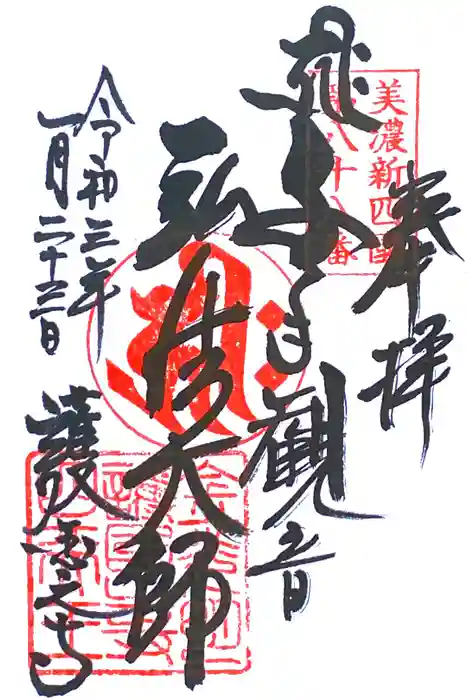 奉拝
美濃新四国
第八十八番
千手観音
弘法大師
令和三年
一月二十三日
護国之寺